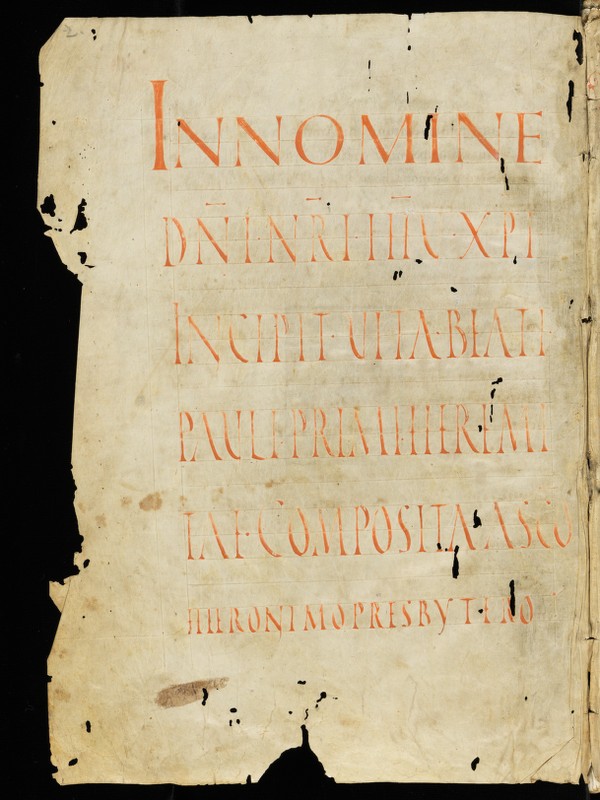 2.
INNOMINE
DN̄I·NR̄I·IH̄U·XPI
INCIPIT·UITA·BEATI·
PAULI·PRIMI·HEREMI
TAE·COMPOSITA·ASCO
HIERONIMO PRESBYTERO